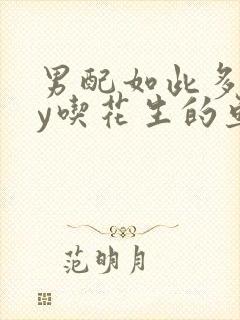 男配如此多
y喫花生的
范明月